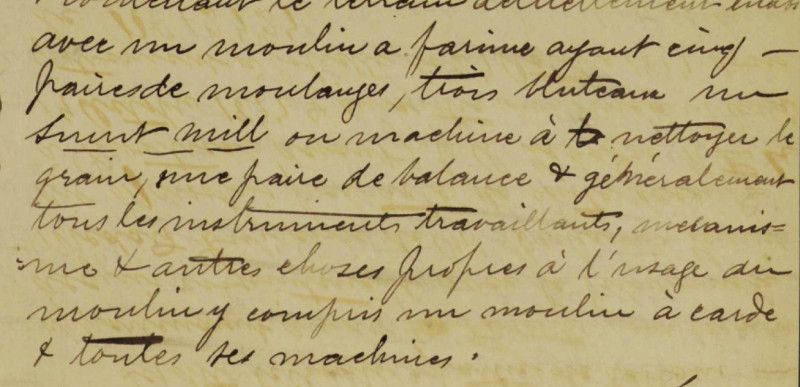 contenant le terrain actuellement
avec un moulin a farine ayant cinq –
paires de moulanges, trois bluteaux un
Smut mill ou machine à nettoyer le
grain, une paire de balance & généralement
tous les instruments travaillants, mecanis=
=me & autres choses propres à l'usage du
moulin y compris un moulin à carde
& toutes ses machines.